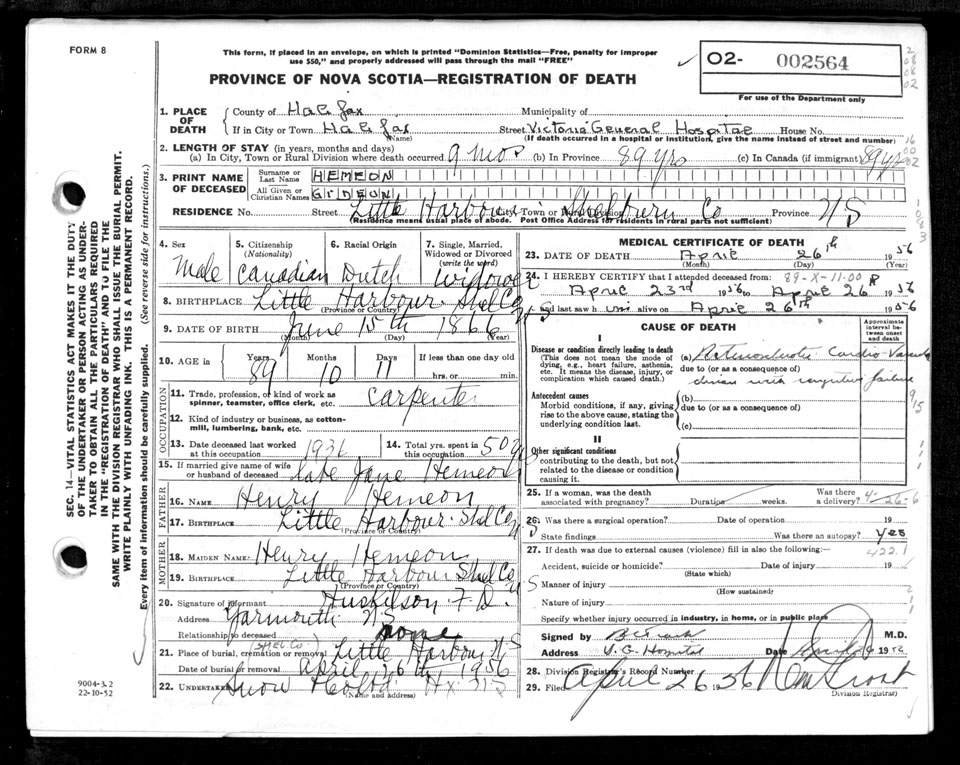 FORM 8
This form, if placed in an envelope, on which is printed "Dominion Statistics—Free, penalty for improper
use $50," and properly addressed will pass through the mail "FREE"
PROVINCE OF NOVA SCOTIA—REGISTRATION OF DEATH
O2- 002564
For use of the Department only
1. PLACE OF DEATH
County of Halifax Municipality of
If in City or Town Halifax Street Victoria General Hospital House No.
(Name) (If death occurred in a hospital or institution, give the name instead of street and number)
2. LENGTH OF STAY (in years, months and days)
(a) In City, Town or Rural Division where death occurred 9 mos (b) In Province 89 yrs (c) In Canada (if immigrant) 89 yrs
3. PRINT NAME OF DECEASED
Surname or Last Name HEMEON
All Given or Christian Names GIDEON
RESIDENCE No. Street Little Harbour City Town or Rural Division Shelburn Co Province NS
(Residence means usual place of abode. Post Office Address for residents in rural parts not sufficient)
4. Sex Male
5. Citizenship (Nationality) Canadian
6. Racial Origin Dutch
7. Single, Married, Widowed or Divorced (write the word) Widower
8. BIRTHPLACE Little Harbour Shel Co NS
(Province or Country)
9. DATE OF BIRTH June 15th 1866
(Month) (Day) (Year)
10. AGE in Years 89 Months 10 Days 11 If less than one day old hrs. or min.
OCCUPATION
11. Trade, profession, or kind of work as spinner, teamster, office clerk, etc. Carpenter
12. Kind of industry or business, as cotton-mill, lumbering, bank, etc.
13. Date deceased last worked at this occupation 1936
14. Total yrs. spent in this occupation 50 yrs
15. If married give name of wife or husband of deceased late Jane Hemeon
FATHER
16. NAME Henry Hemeon
17. BIRTHPLACE Little Harbour Shel Co NS
(Province or Country)
MOTHER
18. MAIDEN NAME Henry Hemeon
19. BIRTHPLACE Little Harbour Shel Co NS
(Province or Country)
20. Signature of informant Huskilson F.D.
Address Yarmouth NS
Relationship to deceased none
21. Place of burial, cremation or removal (SHEL CO) Little Harbour NS
Date of burial or removal April 26th 1956
22. Undertaker Snow Hx. NS
(Name and address)
MEDICAL CERTIFICATE OF DEATH
23. DATE OF DEATH April 26th 1956
(Month) (Day) (Year)
24. I HEREBY CERTIFY that I attended deceased from: 89-X-11-00 R
April 23rd 1956 to April 26 1956
and last saw him alive on April 26th 1956
CAUSE OF DEATH
Approximate interval between onset and death
I
Disease or condition directly leading to death
(This does not mean the mode of dying, e.g., heart failure, asthenia, etc. It means the disease, injury, or complication which caused death.)
(a) Arteriosclerotic Cardio-Vascular
due to (or as a consequence of)
disease with congestive failure
Antecedent causes
Morbid conditions, if any, giving rise to the above cause, stating the underlying condition last.
(b)
due to (or as a consequence of)
(c)
II
Other significant conditions
contributing to the death, but not related to the disease or condition causing it.
25. If a woman, was the death associated with pregnancy? Duration weeks. Was there a delivery? 4-26-6
26. Was there a surgical operation? Date of operation 19
State findings Was there an autopsy? Yes
27. If death was due to external causes (violence) fill in also the following:— 422.1
Accident, suicide or homicide? Date of injury 19
(State which)
Manner of injury
(How sustained)
Nature of injury
Specify whether injury occurred in industry, in home, or in public place
Signed by M.D.
Address V.G. Hospital Date April 26 1956
28. Division Registrar's Record Number
29. Filed April 26 1956
Division Registrar
SEC. 14—VITAL STATISTICS ACT MAKES IT THE DUTY
OF THE UNDERTAKER OR PERSON ACTING AS UNDER-
TAKER TO OBTAIN ALL THE PARTICULARS REQUIRED
IN THE "REGISTRATION OF DEATH" AND TO FILE THE
SAME WITH THE DIVISION REGISTRAR WHO SHALL ISSUE THE BURIAL PERMIT.
WRITE PLAINLY WITH UNFADING INK. THIS IS A PERMANENT RECORD.
Every item of information should be carefully supplied. (See reverse side for instructions.)
9004-3.2
22-10-52